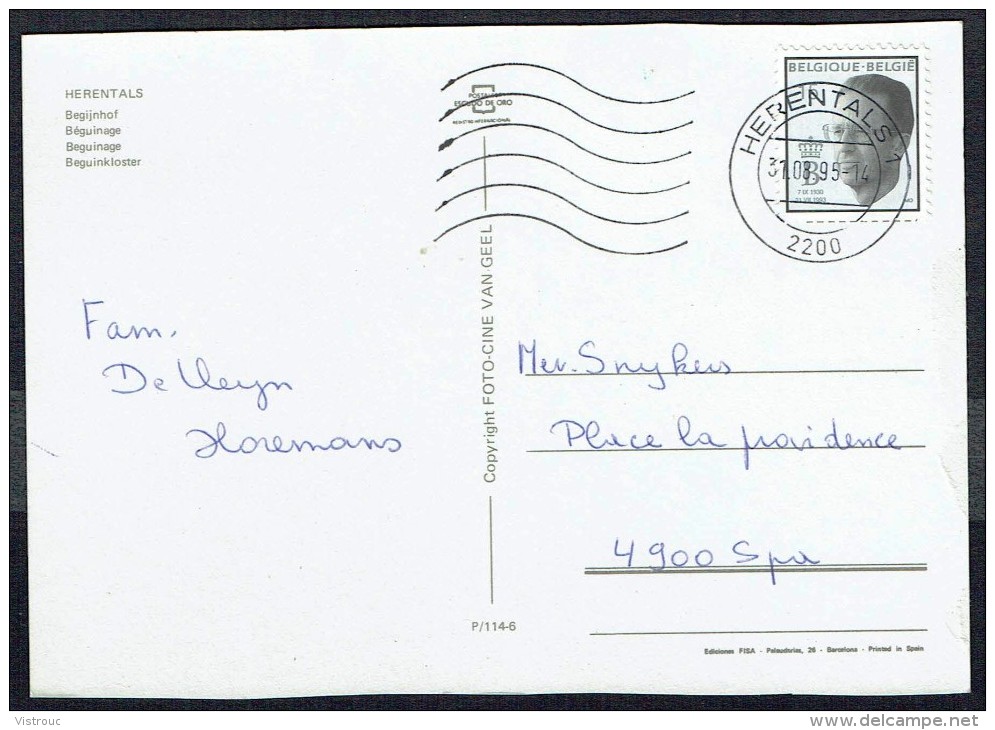 HERENTALS
Begijnhof
Béguinage
Beguinage
Beguinkloster
POSTALES
ESCUDO DE ORO
BELGIQUE·BELGIË
B
7 IX 1930
31 VII 1993
HERENTALS 1
31.08.95-14
2200
Fam.
De Kleyn
Horemans
Copyright FOTO-CINE VAN-GEEL
Mev. Snykers
Place la providence
4900 Spa
P/114-6
Ediciones FISA - Palaudarias, 26 - Barcelona - Printed in Spain
Vistrouc
www.delcampe.net